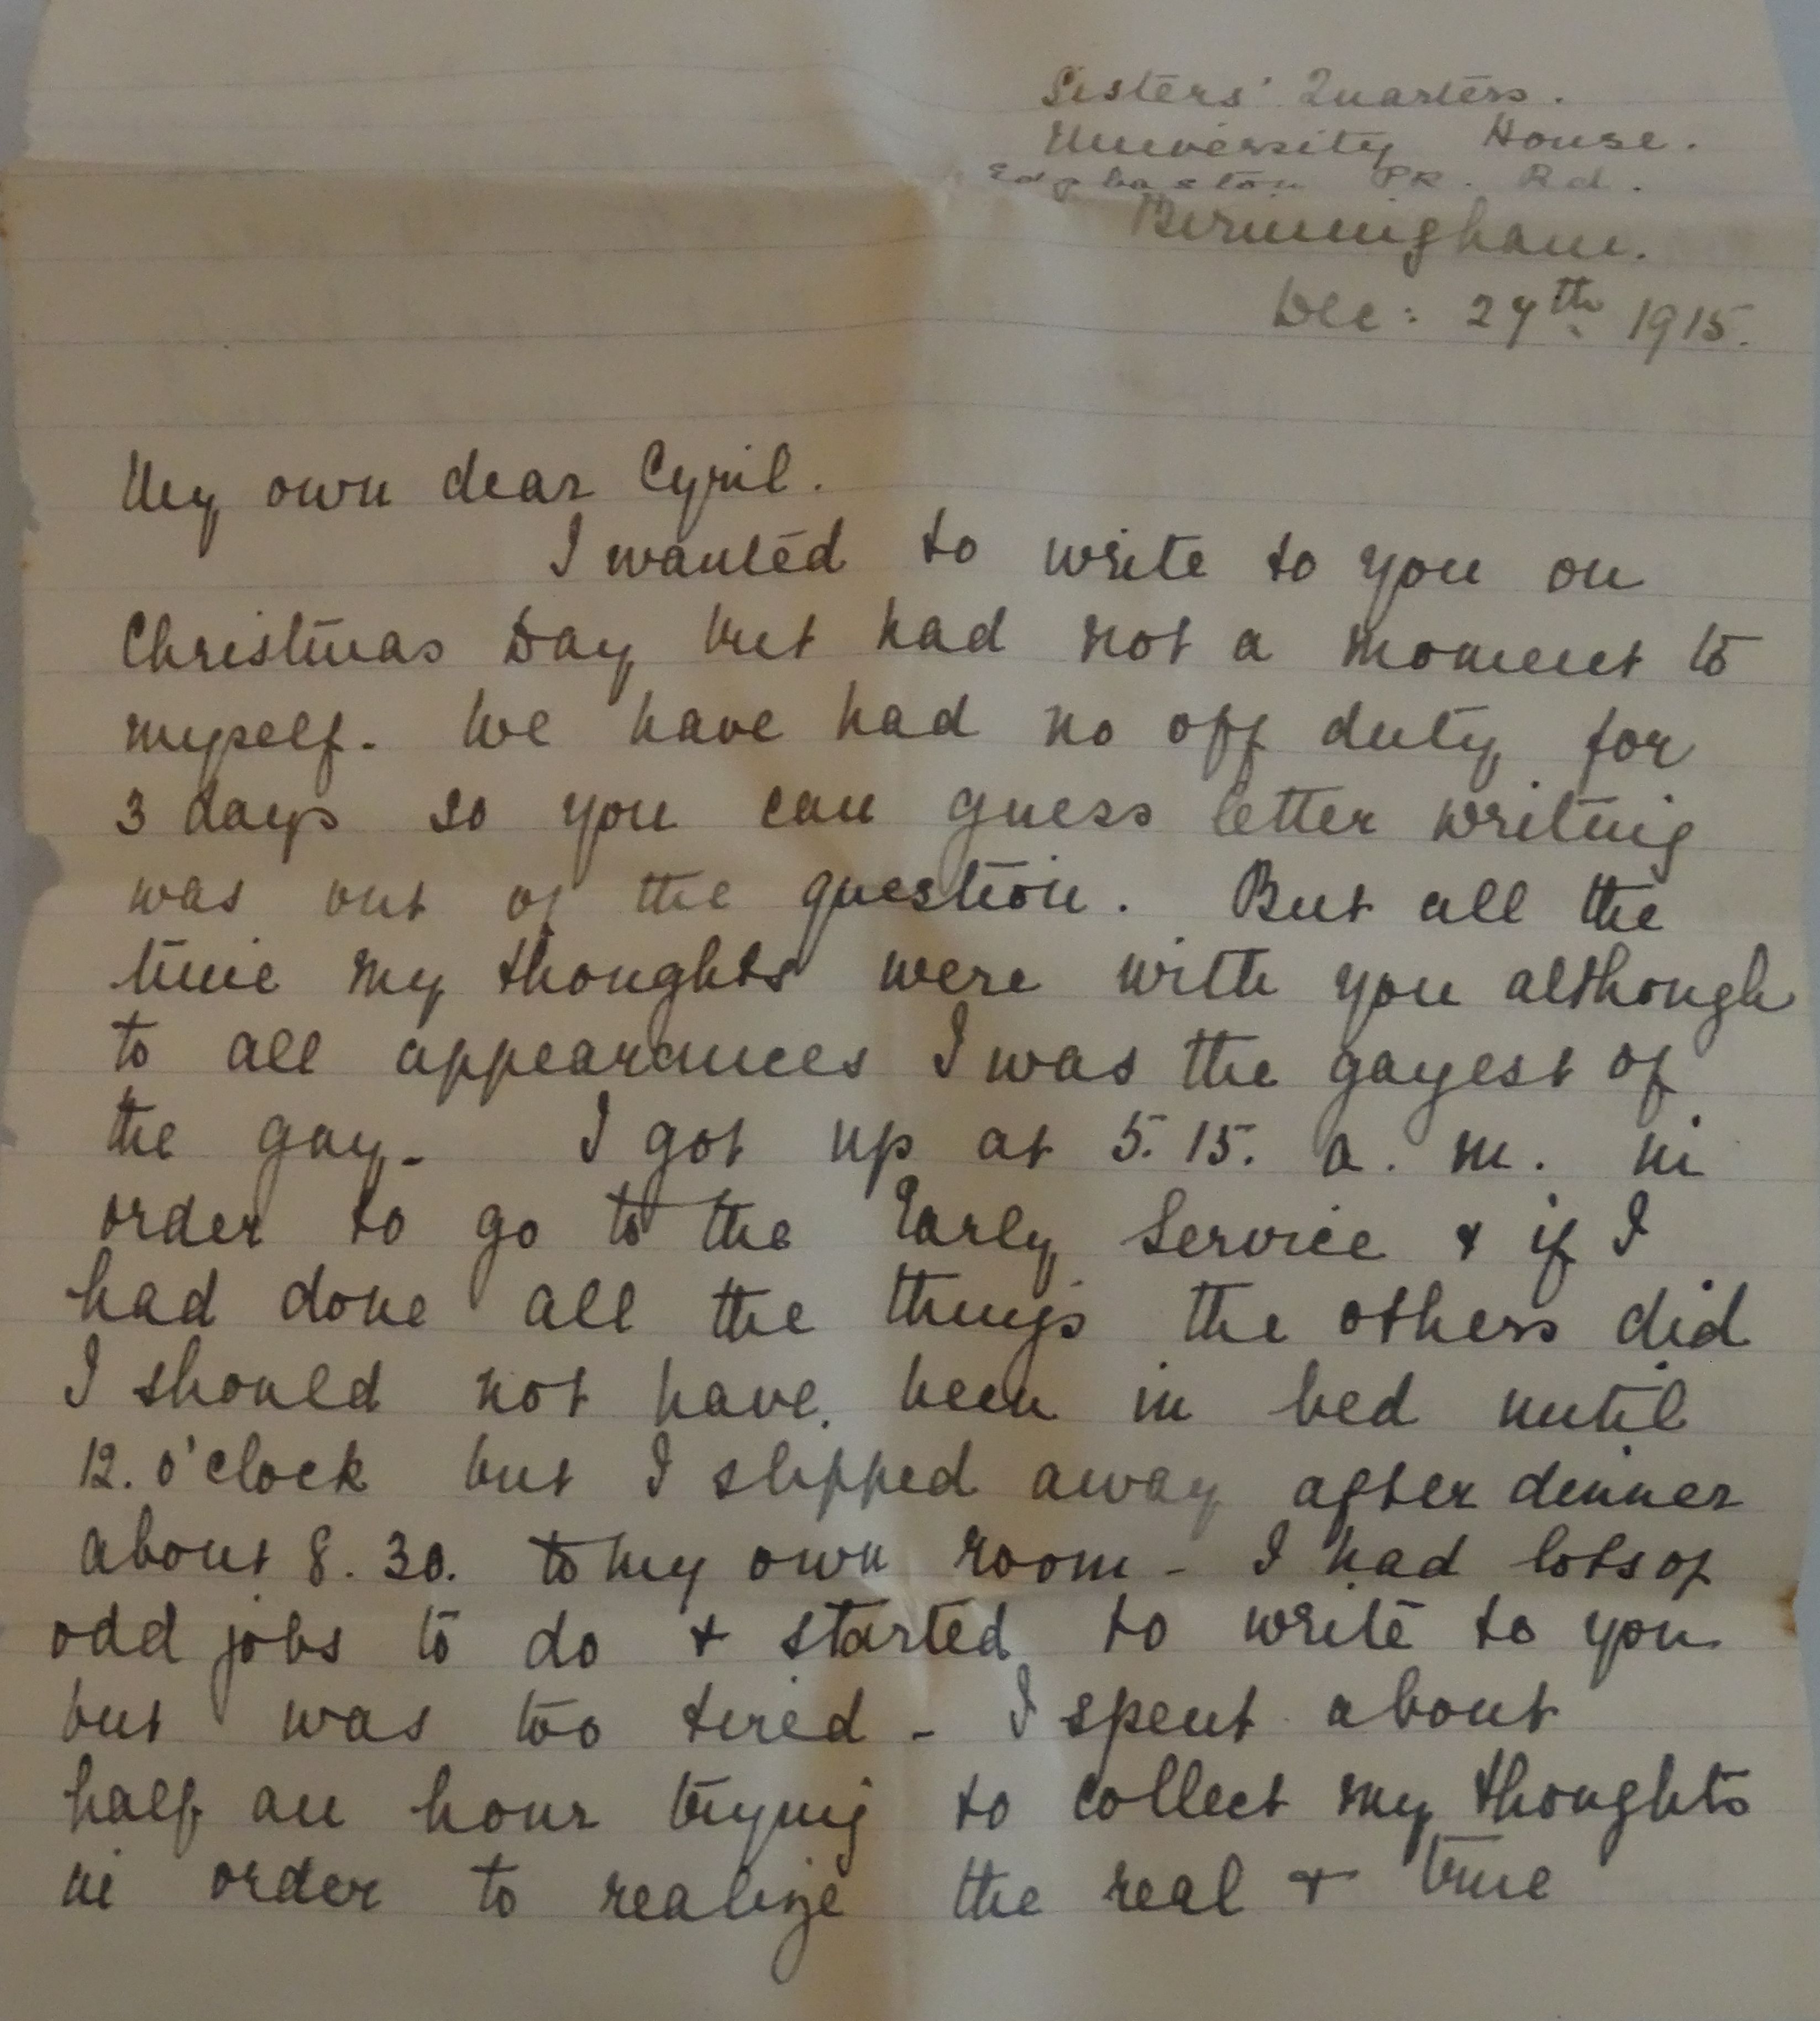 Sisters' Quarters.
University House.
Edgbaston Pk. Rd.
Birmingham.
Dec: 27th 1915.
My own dear Cyril.
I wanted to write to you on
Christmas Day but had not a moment to
myself. We have had no off duty for
3 days so you can guess letter writing
was out of the question. But all the
time my thoughts were with you although
to all appearances I was the gayest of
the gay - I got up at 5.15. a.m. in
order to go to the Early Service & if I
had done all the things the others did
I should not have been in bed until
12. o'clock but I slipped away after dinner
about 8.30. to my own room - I had lots of
odd jobs to do & started to write to you
but was too tired - I spent about
half an hour trying to collect my thoughts
in order to realize the real & true